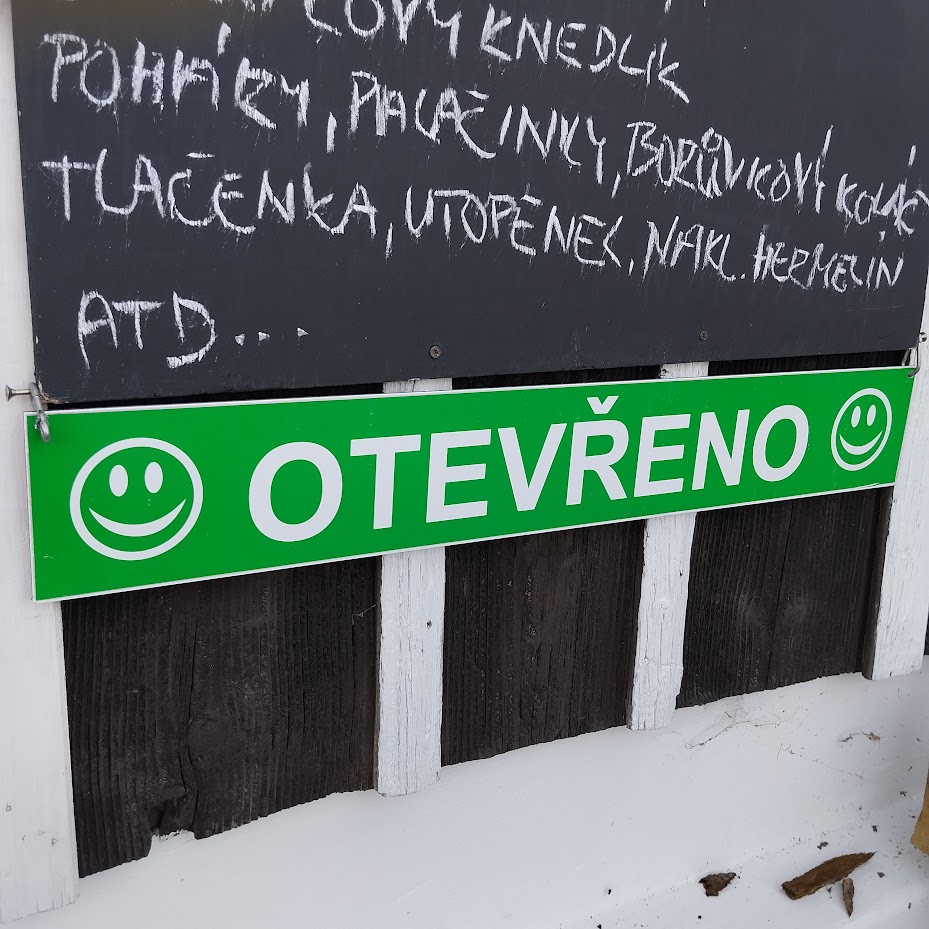 KNEDLÍK
POHÁRY, PALAČINKY, BORŮVKOVÝ KOLÁČ
TLAČENKA, UTOPENEC, NAKL. HERMELÍN
ATD...
OTEVŘENO